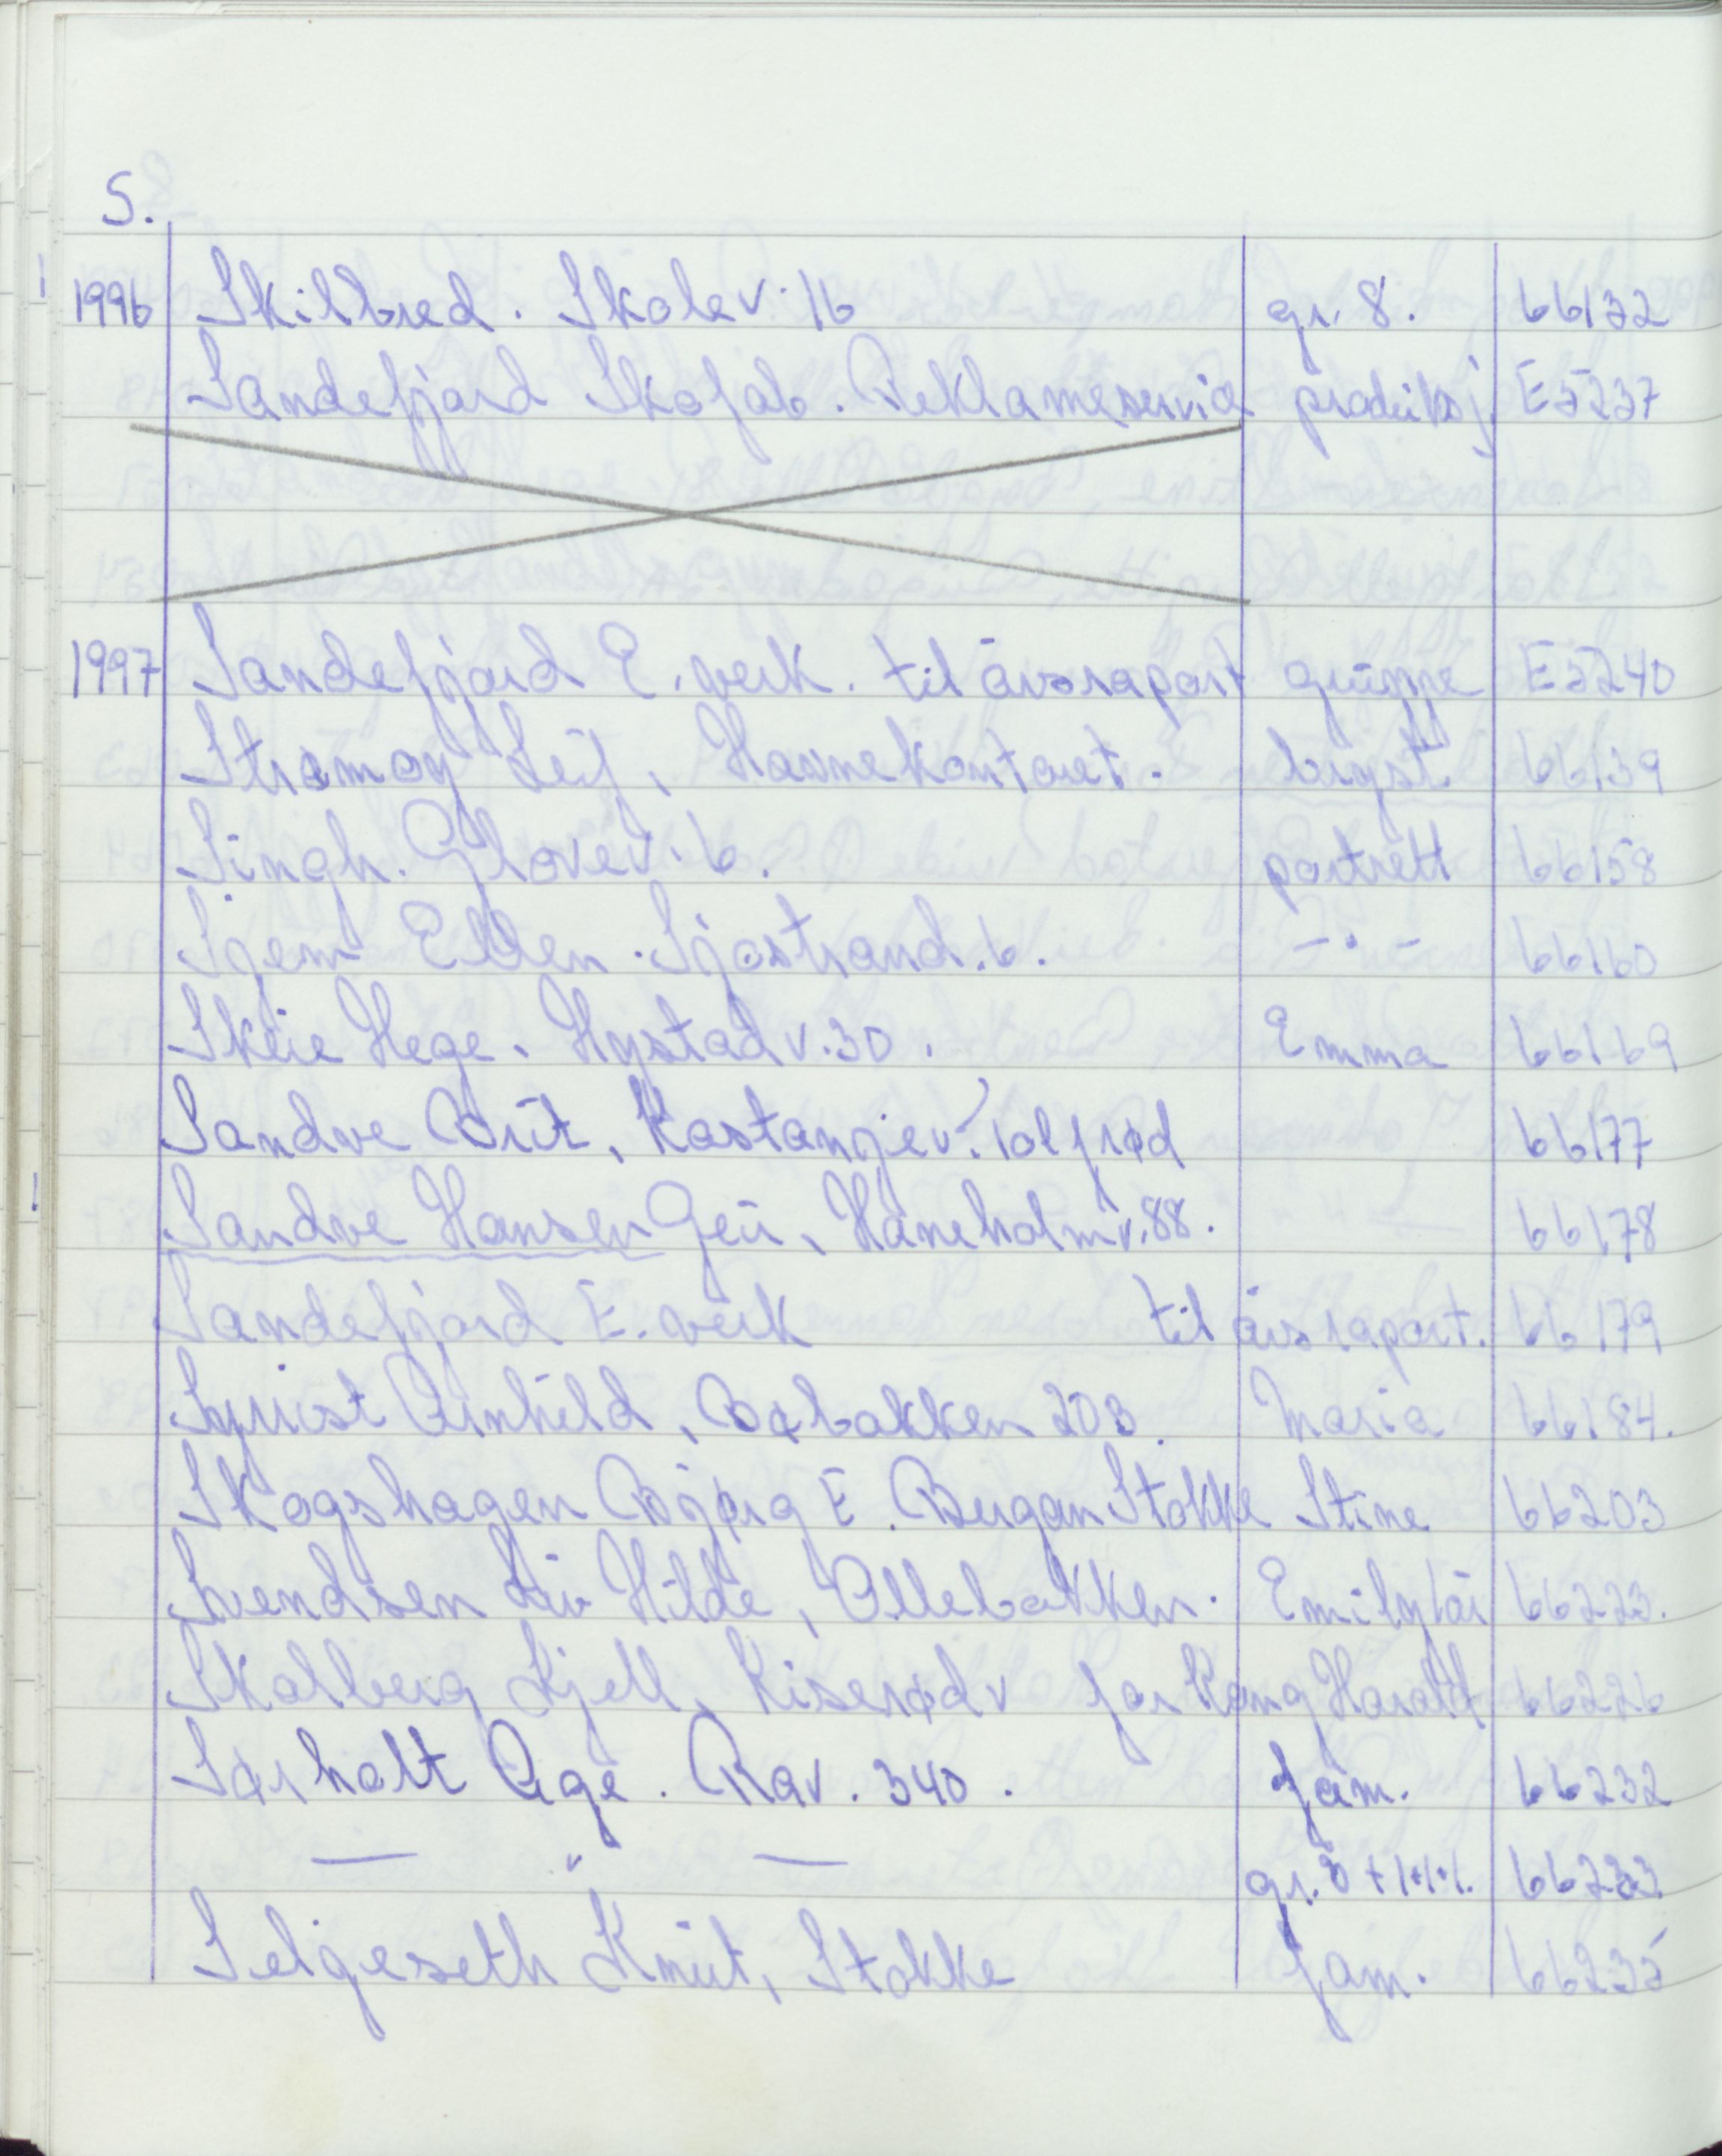 S.
1996 Skilbred. Skolev. 16 gr. 8. 66132
Sandefjord Skofab. Reklameservice produksj. E5237
1997 Sandefjord E. verk. til årsraport gruppe E5240
Stromoy Leif, Havnekontoret. bryst. 66139
Singh. Gloverv. 6. portrett 66158
Sjem Ellen. Sjøstrand. 6. -"- 66160
Skeie Hege. Hystadv. 30. Emma 66169
Sandve Brit, Kastanjev. Tolfrød 66177
Sandve Hansen Geir, Haneholmv. 88. 66178
Sandefjord E. verk til årsraport. 66179
Arnhild, Bøbakken 203. Maria 66184.
Skogshagen Bjørg E. Bergan Stokke Stine 66203
Svendsen Liv Hilde, Ollebakken. 66223.
Skalberg Kjell, Riserødv for Kong Harald 66226
Sørholt Åge. Rav. 340. fam. 66232
— " — gr. 8 + 1+1+1. 66233
Selgeseth Knut, Stokke fam. 66235